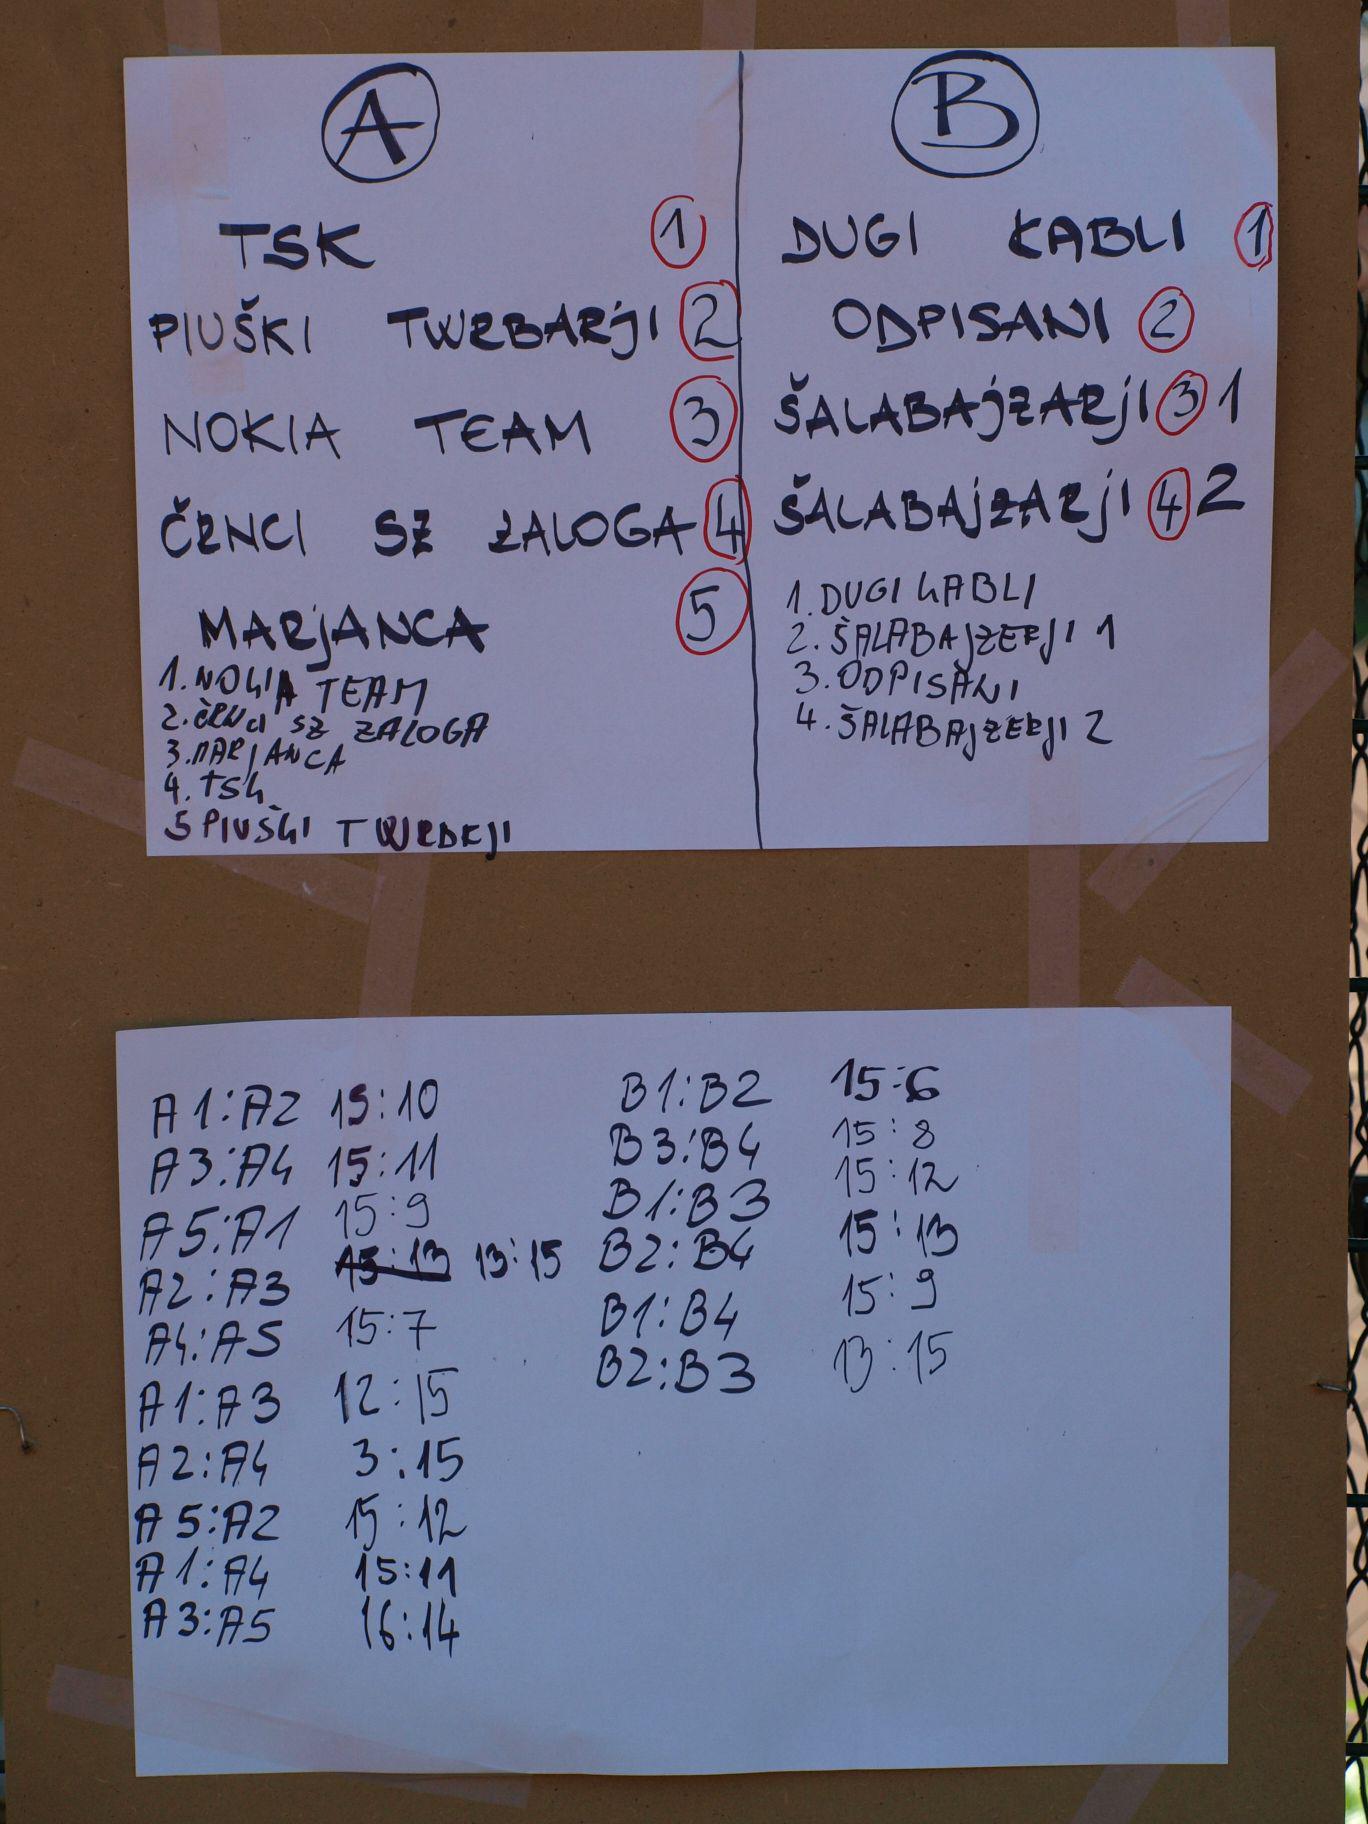 A
TSK 1
PIUŠKI TWRBARJI 2
NOKIA TEAM 3
ČRNCI SZ ZALOGA 4
MARJANCA 5
1. NOKIA TEAM
2. ČRNCI SZ ZALOGA
3. MARJANCA
4. TSK
5 PIUŠKI
B
DUGI KABLI 1
ODPISANI 2
ŠALABAJZARJI 3 1
ŠALABAJZARJI 4 2
1. DUGI KABLI
2. ŠALABAJZERJI 1
3. ODPISANI
4. ŠALABAJZERJI 2
A1:A2 15:10
A3:A4 15:11
A5:A1 15:9
A2:A3 15:13 13:15
A4:A5 15:7
A1:A3 12:15
A2:A4 3:15
A5:A2 15:12
A1:A4 15:11
A3:A5 16:14
B1:B2 15:6
B3:B4 15:8
B1:B3 15:12
B2:B4 15:13
B1:B4 15:9
B2:B3 13:15